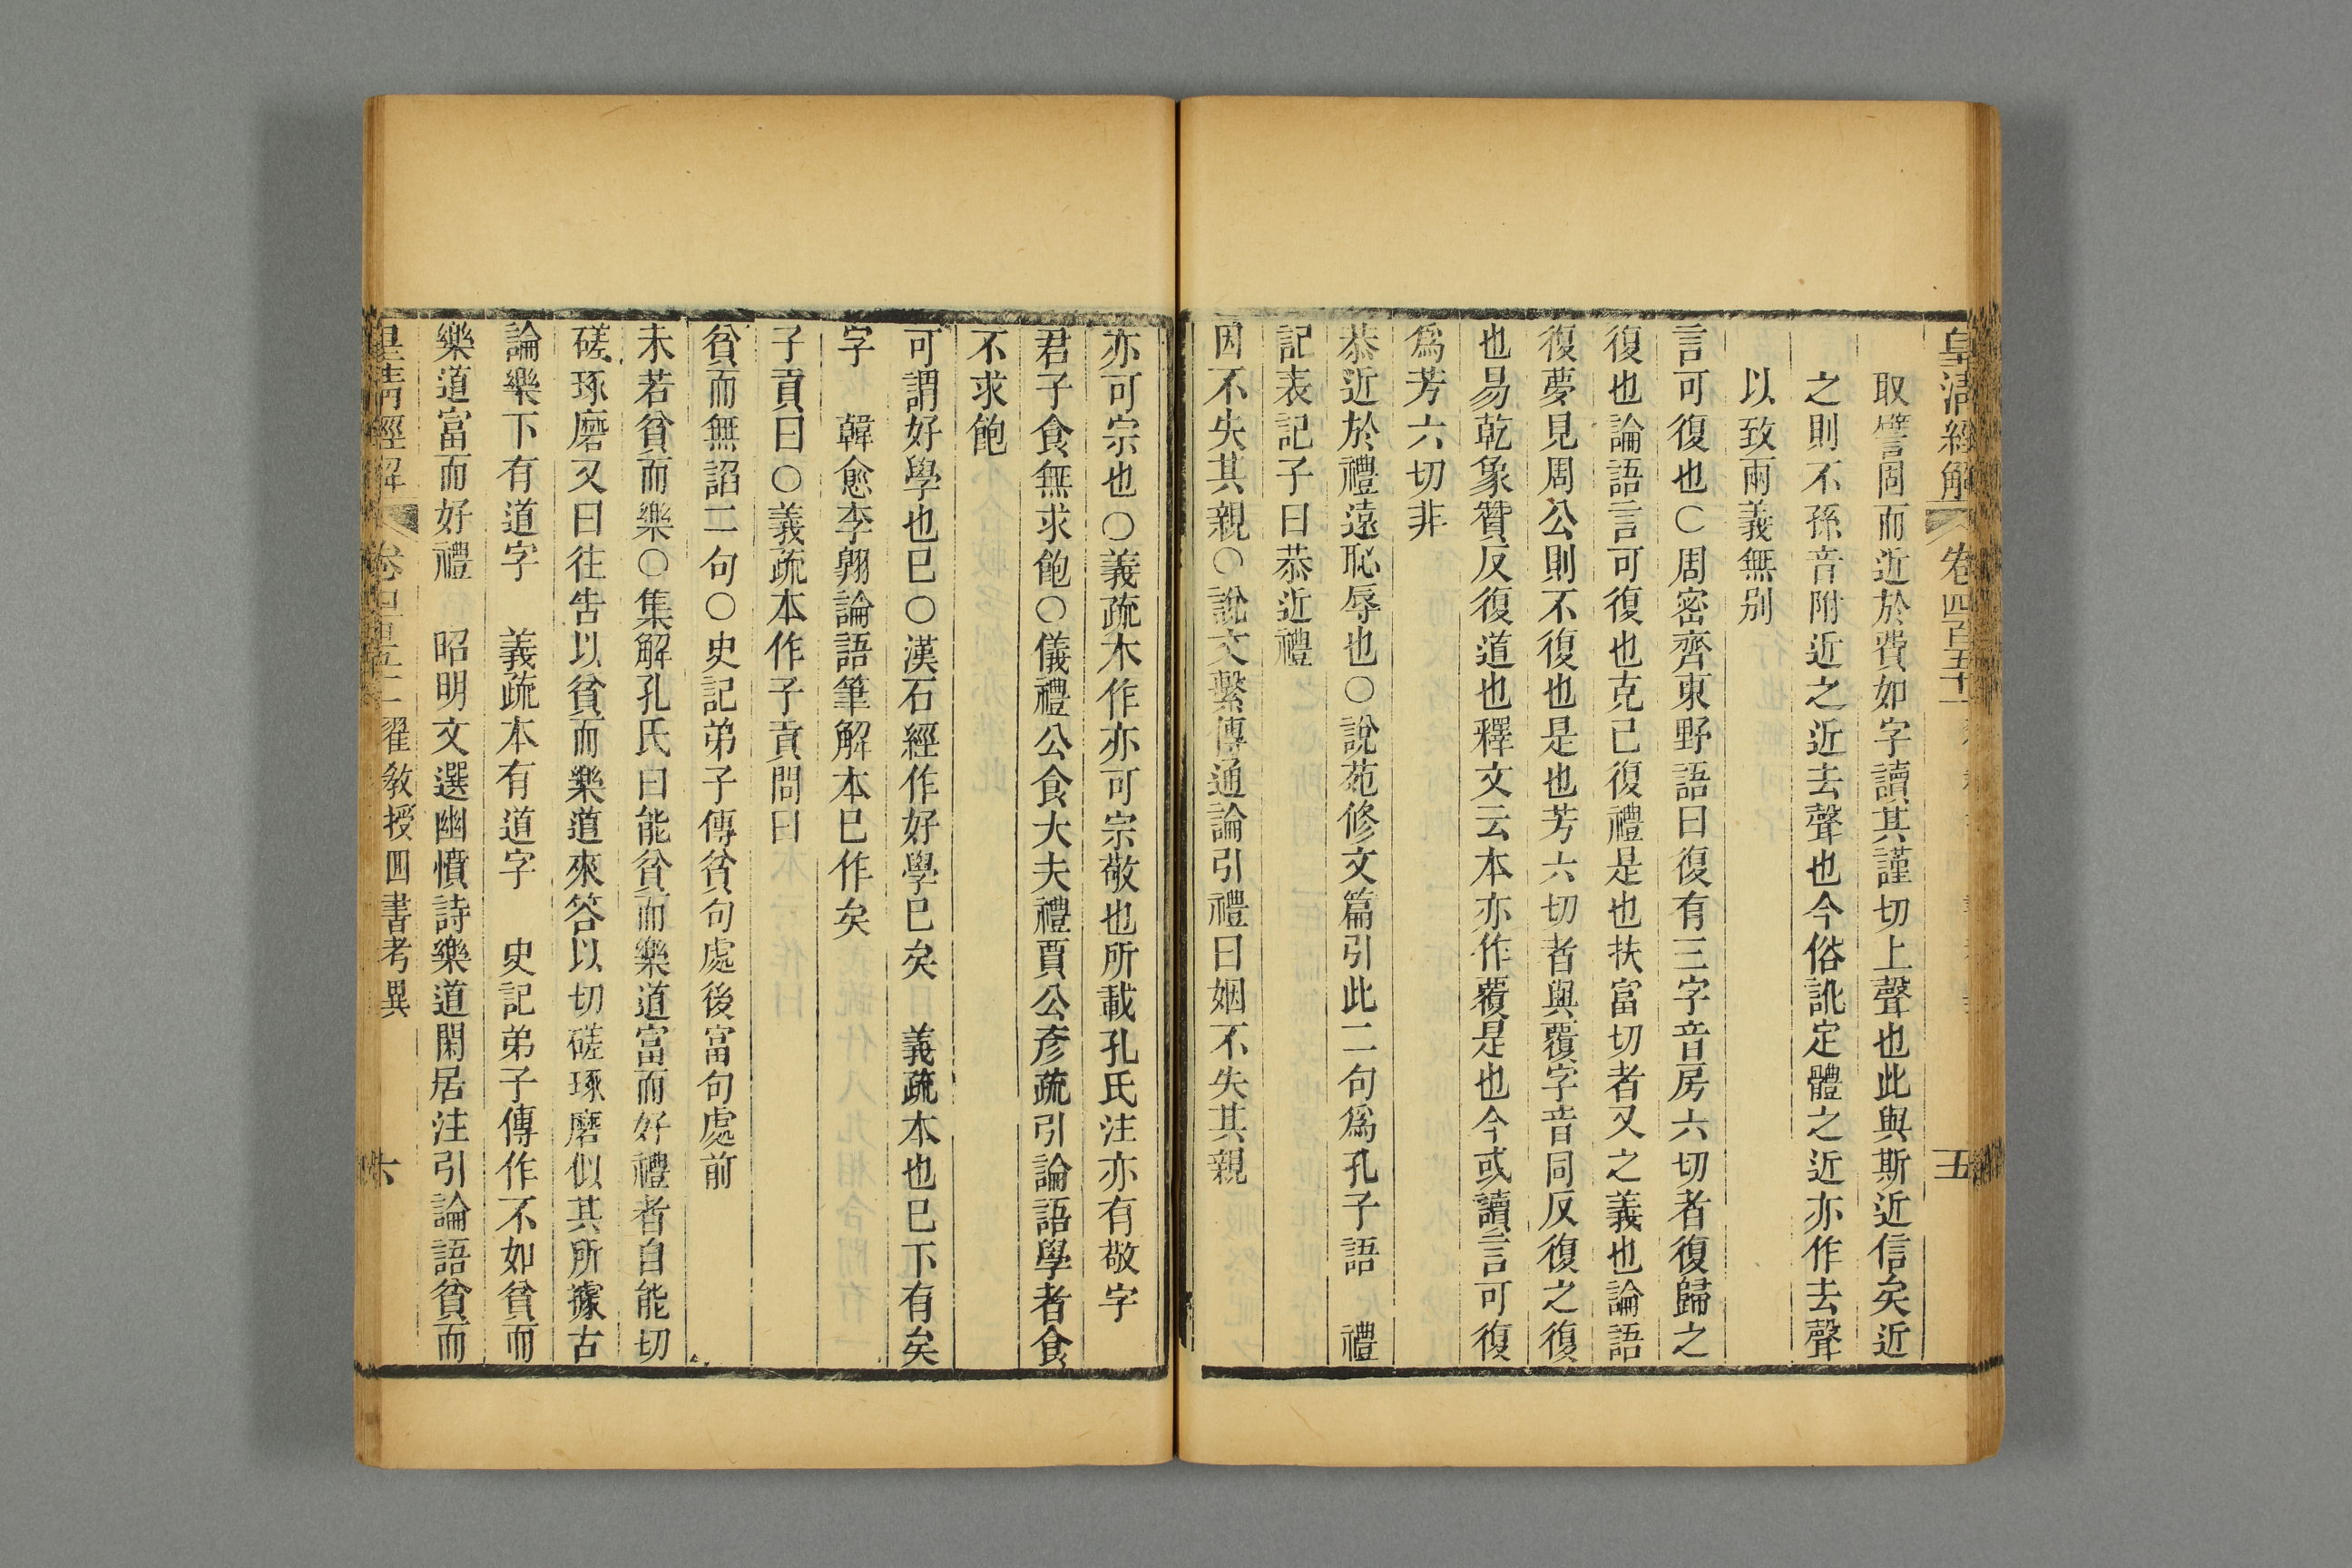 皇清經解 卷四百五十 五
取譬固而近於費如字讀其謹切上聲也此與斯近信矣近
之則不孫音附近之近去聲也今俗訛定體之近亦作去聲
以致兩義無別
言可復也○周密齊東野語曰復有三字音房六切者復歸之
復也論語言可復也克己復禮是也扶富切者又之義也論語
復夢見周公則不復也是也芳六切者與覆字音同反復之復
也易乾象贊反復道也釋文云本亦作覆是也今或讀言可復
爲芳六切非
恭近於禮遠恥辱也○說苑修文篇引此二句爲孔子語 禮
記表記子曰恭近禮
因不失其親○說文繫傳通論引禮曰姻不失其親
亦可宗也○義疏本作亦可宗敬也所載孔氏注亦有敬字
君子食無求飽○儀禮公食大夫禮賈公彥疏引論語學者食
不求飽
可謂好學也已○漢石經作好學已矣 義疏本也已下有矣
字 韓愈李翱論語筆解本已作矣
子貢曰○義疏本作子貢問曰
貧而無諂二句○史記弟子傳貧句處後富句處前
未若貧而樂○集解孔氏曰能貧而樂道富而好禮者自能切
磋琢磨又曰往告以貧而樂道來答以切磋琢磨似其所據古
論樂下有道字 義疏本有道字 史記弟子傳作不如貧而
樂道富而好禮 昭明文選幽憤詩樂道閑居注引論語貧而
皇清經解 卷四百五十二 翟教授四書考異 六